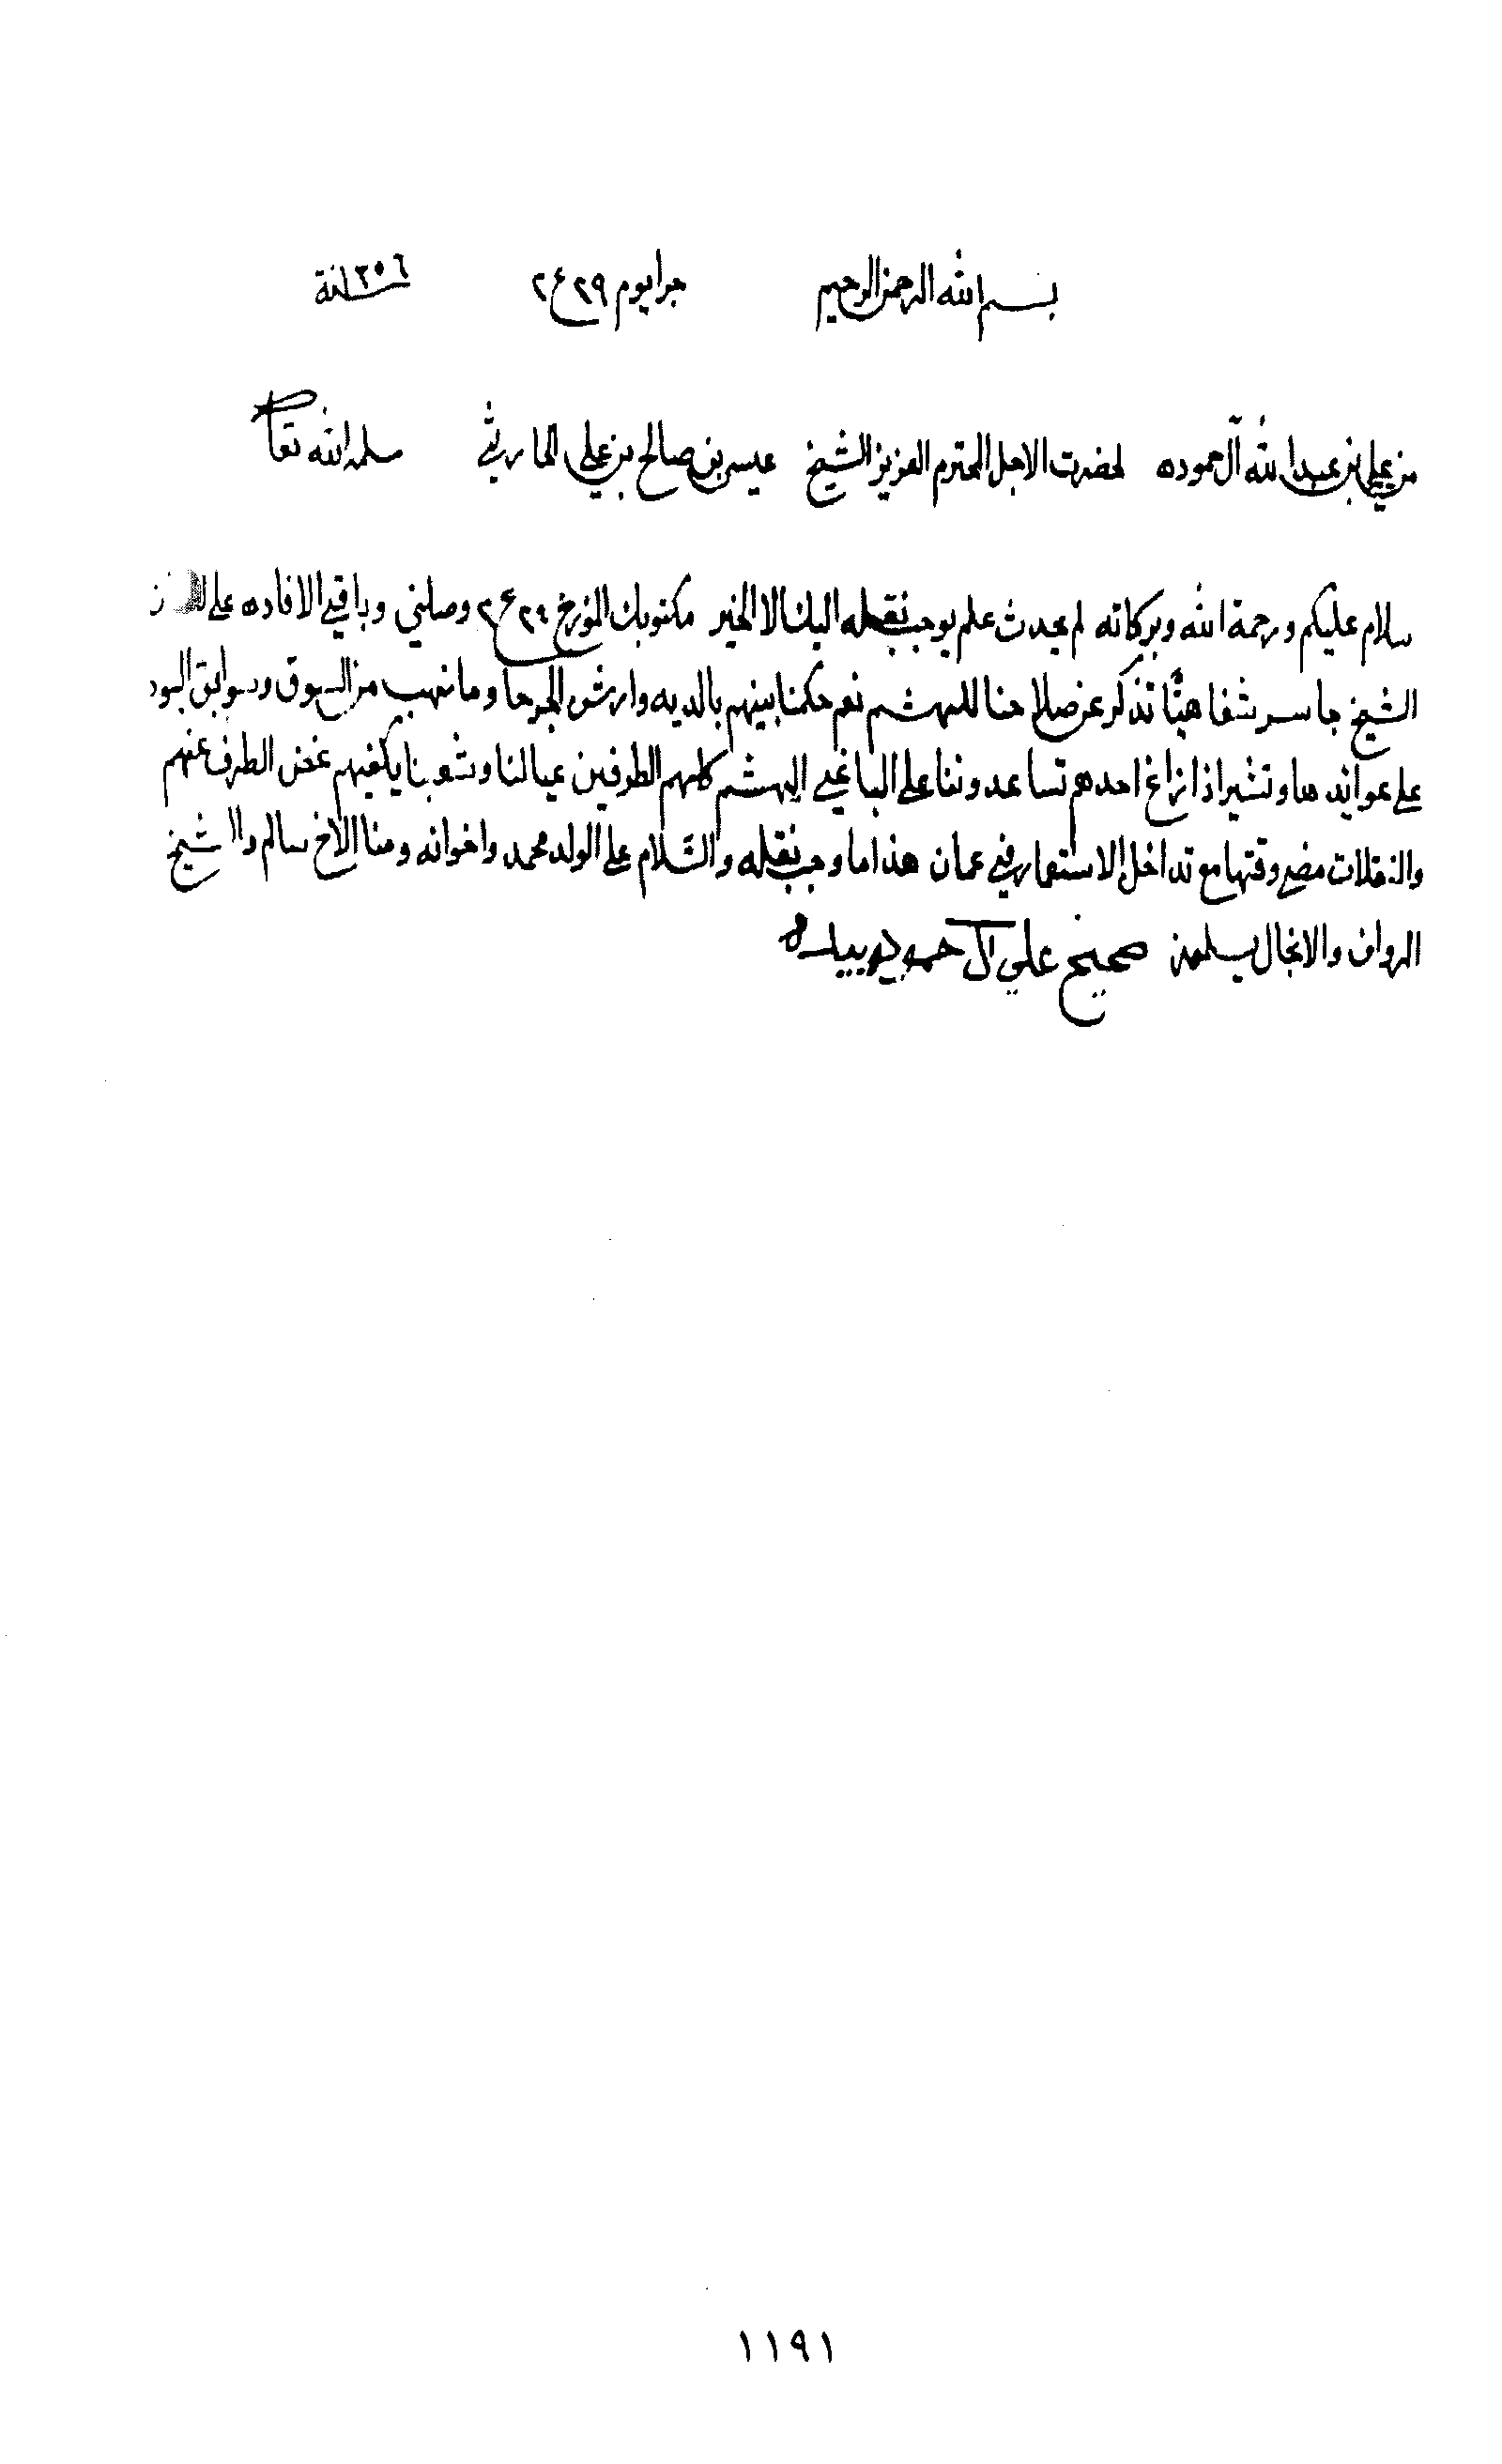 بسم الله الرحمن الرحيم حرر يوم ٢٩ ع٢ سنة
من علي بن عبدالله آل حموده لحضرت الاجل المحترم العزيز الشيخ عيسى بن صالح بن علي الحارثي سلمه الله تعا
سلام عليكم ورحمة الله وبركاته لم يحدث علم يوجب نقله اليك الا الخير مكتوبك المؤرخ ع٢ وصلني وباقي الافاده على
الشيخ جاسر شفاهيًا تذكر عن صلاحنا للهشم نعم حكمنا بينهم بالديه وارش الجرحا وما نهب من السوق وسوابق
على عوايدها وتشير اذا زاغ احدهم تساعدوننا على الباغي الهشم كلهم الطرفين عيالنا وشعبنا يكفيهم غض الطرف عنهم
والنقلات مضى وقتها مع تداخل الاستعمار في عمان هذا ما وجب نقله والسّلام على الولد محمد واخوانه ومنا الاخ سالم والشيخ
الرواف والانجال يسلمون صحيح علي آل حموده بيده
١١٩١